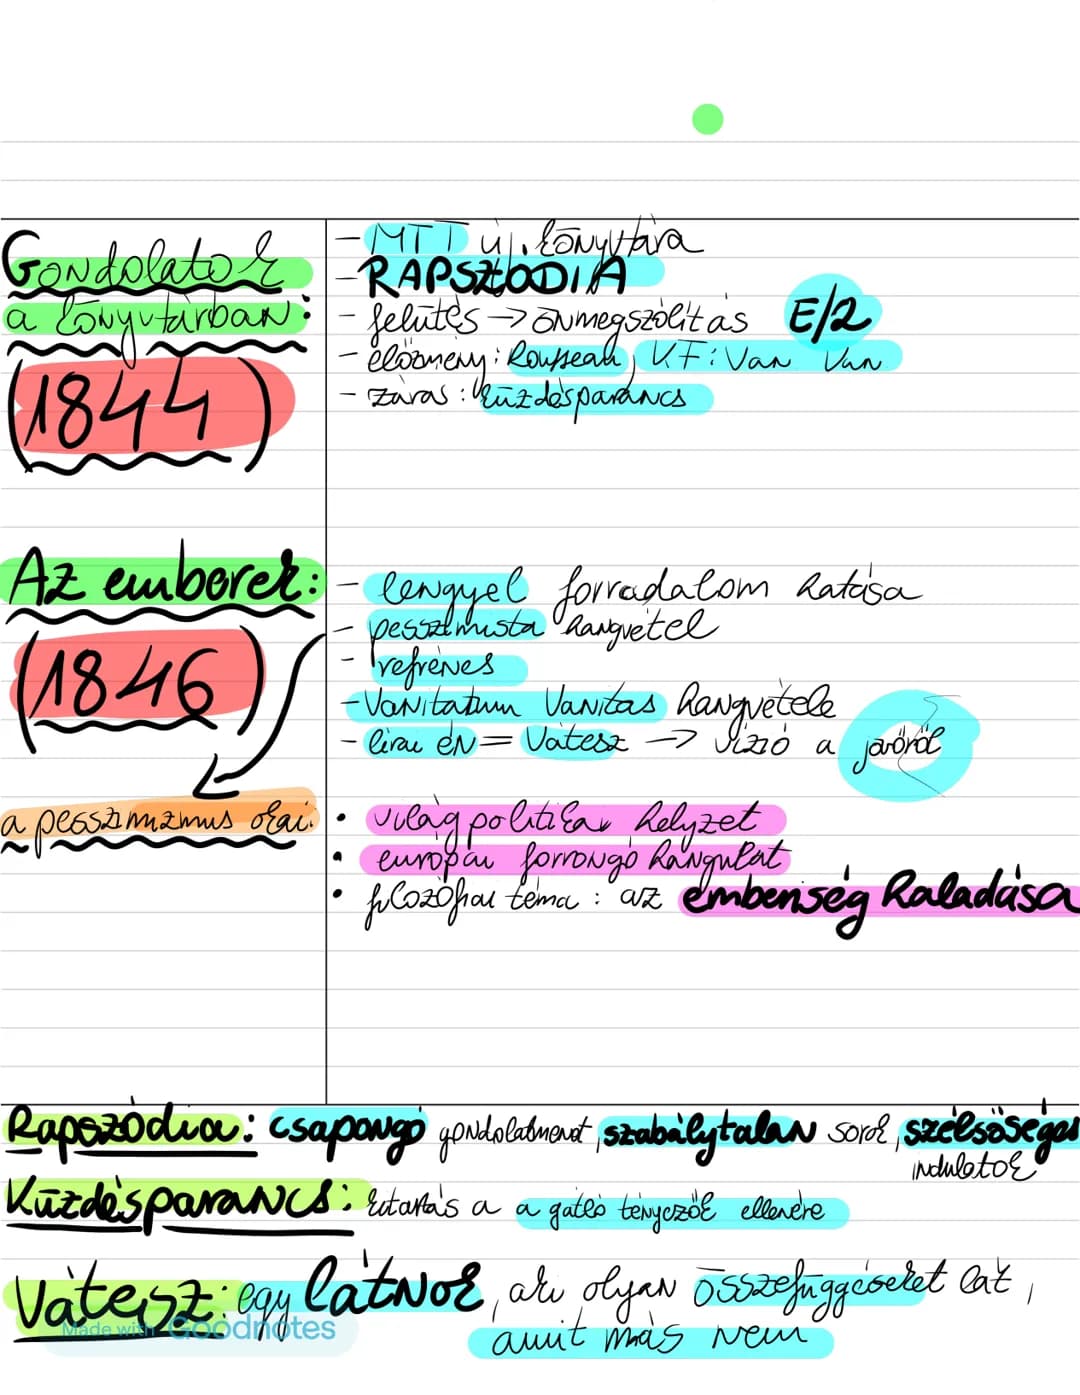 Gondolatok
a könyvtárban:
(1844)
- MTT új. könyvtára
- RAPSZÓDIA
- felütés → önmegszólítás E/2
- előzmény: Rousseau, K.F: Van Van
- zárás: küzdésparancs
Az emberek:
(1846)
- lengyel forradalom hatása
- pesszimista hangvétel
- refrénes
- Vanitatum Vanitas hangvétele
- lírai én = Vátesz → vízió a jövőről
a pesszimizmus okai:
• világpolitikai helyzet
• európai forrongó hangulat
• filozófiai téma: az emberiség haladása
Rapszódia: csapongó gondolatmenet, szabálytalan sorok, szélsőséges
indulatok
Küzdésparancs: kitartás a a gátló tényezők ellenére
Vátesz: egy látnok, aki olyan összefüggéseket lát,
amit más nem
Made with Goodnotes